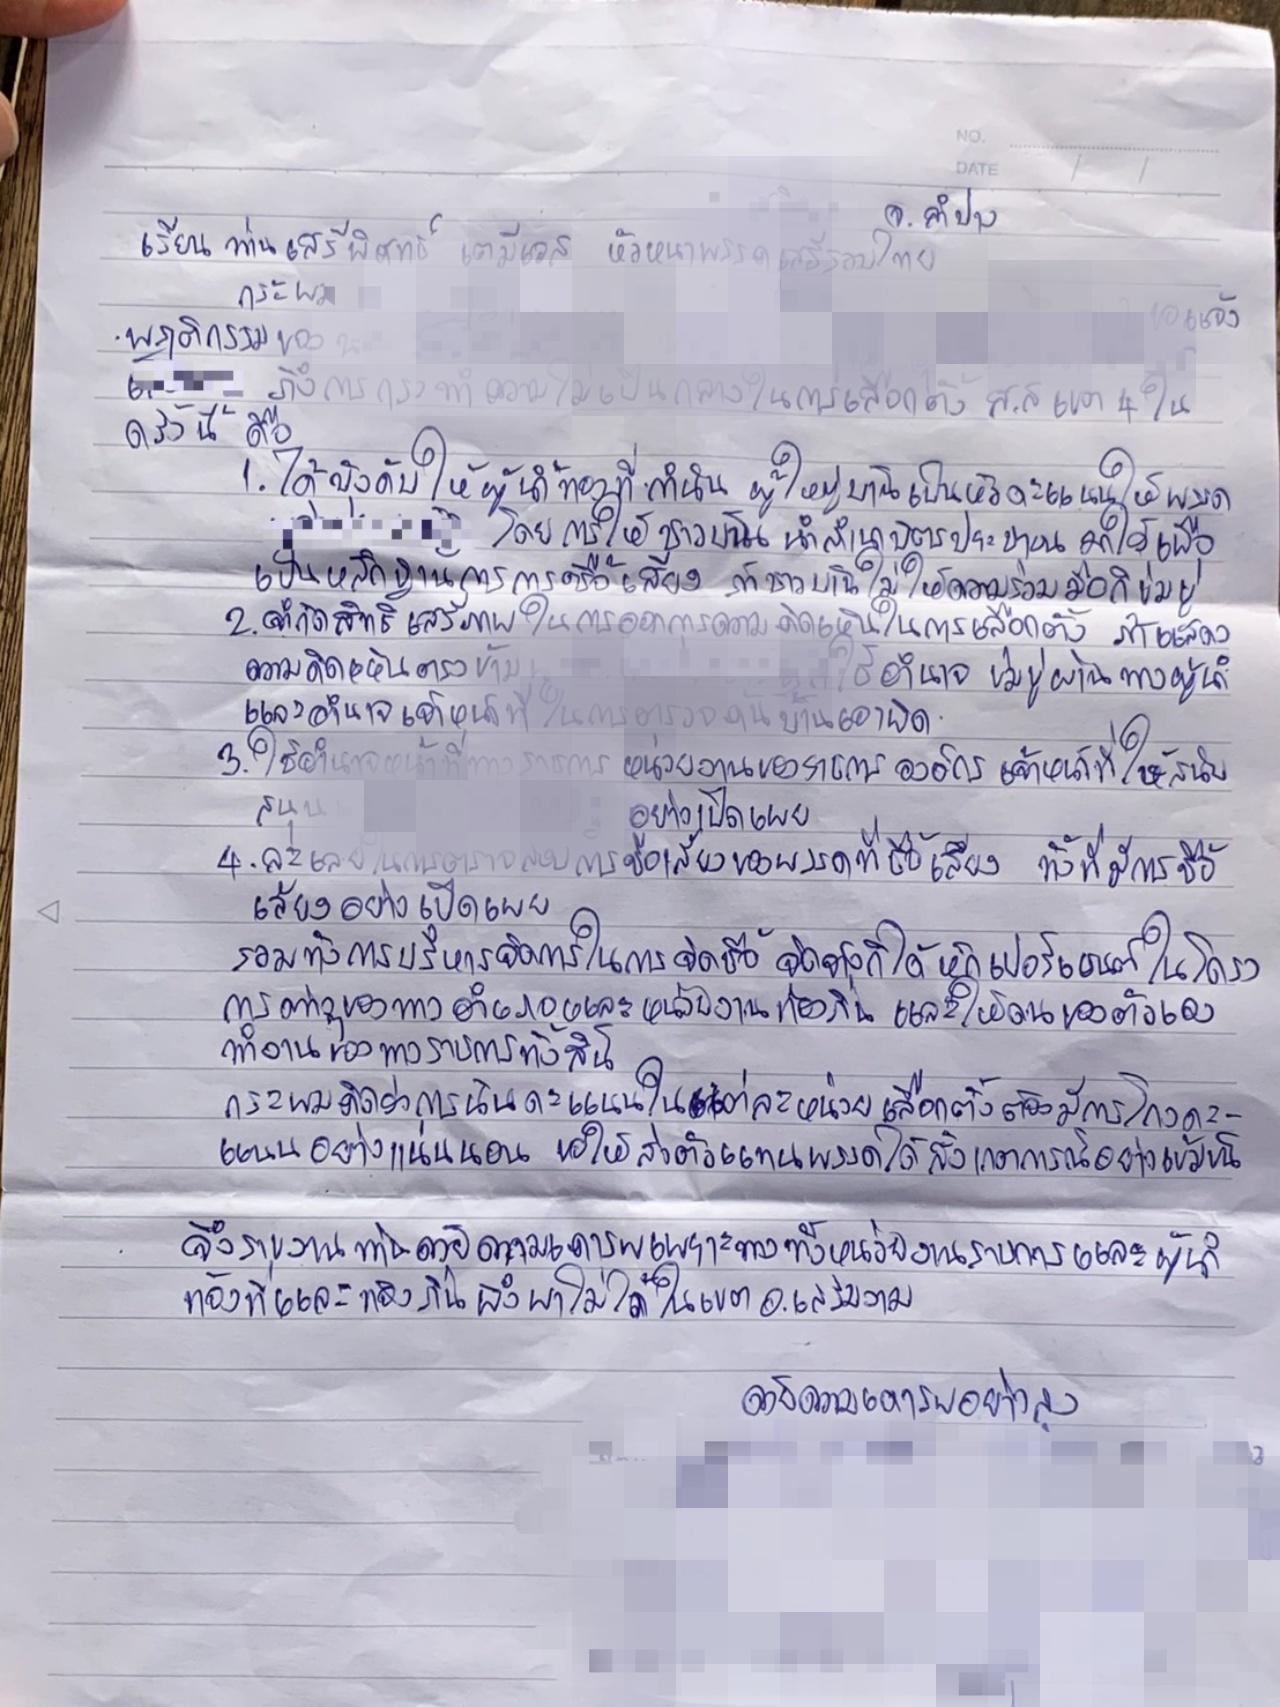 NO.
DATE / /
จ. ลำปาง
เรียน ท่าน เสรีพิศุทธ์ เตมียเวส หัวหน้าพรรคเสรีรวมไทย
กระผม
ขอแจ้ง
พฤติกรรมของ
ถึงการกระทำความไม่เป็นกลางในการเลือกตั้ง ส.ส เขต 4 ใน
ครั้งนี้ คือ
1. ได้บังคับให้ผู้นำท้องที่ กำนัน ผู้ใหญ่บ้านเป็นหัวคะแนนให้พรรค
โดยการให้ชาวบ้าน นำสำเนาบัตรประชาชน มาให้เพื่อ
เป็นหลักฐานการการซื้อเสียง ถ้าชาวบ้านไม่ให้ความร่วมมือก็ข่มขู่
2. จำกัดสิทธิเสรีภาพในการออกการความคิดเห็นในการเลือกตั้ง ถ้าแสดง
ความคิดเห็นตรงข้าม ใช้อำนาจ ข่มขู่ผ่านทางผู้นำ
และอำนาจเจ้าหน้าที่ในการตรวจค้นบ้านเอาผิด.
3. ใช้อำนาจหน้าที่ทางราชการ หน่วยงานของราชการ องค์กร เจ้าหน้าที่ให้สนับ
สนุน อย่างเปิดเผย
4. ละเลยในการตรวจสอบการซื้อเสียงของพรรคที่ซื้อเสียง ทั้งที่มีการซื้อ
เสียงอย่างเปิดเผย
รวมทั้งการบริหารจัดการในการจัดซื้อ จัดจ้างก็ได้หักเปอร์เซนต์ในโครง
การต่างๆของทางอำเภอและหน่วยงานท้องถิ่น และให้คนของตัวเอง
ทำงานของทางราชการทั้งสิ้น
กระผมคิดว่าการนับคะแนนในแต่ละหน่วยเลือกตั้งต้องมีการโกงคะ-
แนนอย่างแน่นนอน ขอให้ส่งตัวแทนพรรคได้สังเกตการณ์อย่างเข้มข้น
จึงรายงานท่านด้วยความเคารพเพราะทางทั้งหน่วยงานราชการและผู้นำ
ท้องที่และท้องถิ่นพึ่งพาไม่ได้ในเขต อ.เสริมงาม
ด้วยความเคารพอย่างสูง